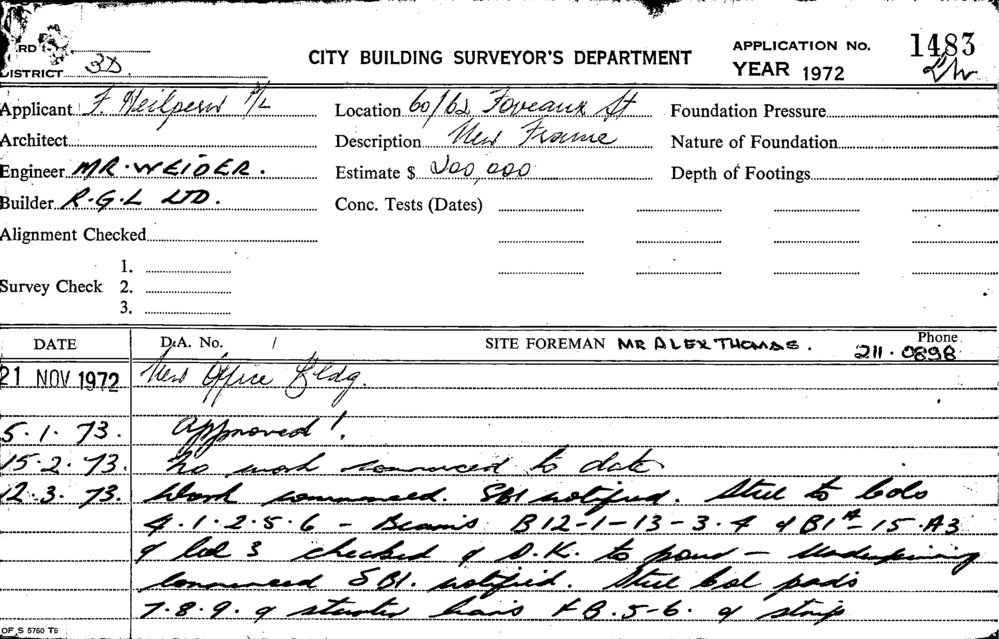 CITY BUILDING SURVEYOR'S DEPARTMENT
APPLICATION No. 1483
YEAR 1972
DISTRICT 3D.
Applicant F. Heilpern P/L
Location 60/62 Foveaux St
Foundation Pressure
Architect
Description New Frame
Nature of Foundation
Engineer MR. WEIDER.
Estimate $ 200,000
Depth of Footings
Builder R.G.L LTD.
Conc. Tests (Dates)
Alignment Checked
1.
Survey Check 2.
3.
DATE D.A. No. / SITE FOREMAN MR ALEX THOMAS. Phone 211.0898
21 NOV 1972 New Office Bldg.
5.1.73. Approved!
15.2.73. No work commenced to date
12.3.73. Work commenced. SBI notified. Steel to Cols
4.1.2.5.6 - Beams B12-1-13-3.4 & B1A-15.A3
& Col 3 checked & O.K. to pour - Underpinning
Commenced SBI. notified. Steel Col pads
7.8.9. & starter bars FB.5-6. & strip
OF S 5760 T6